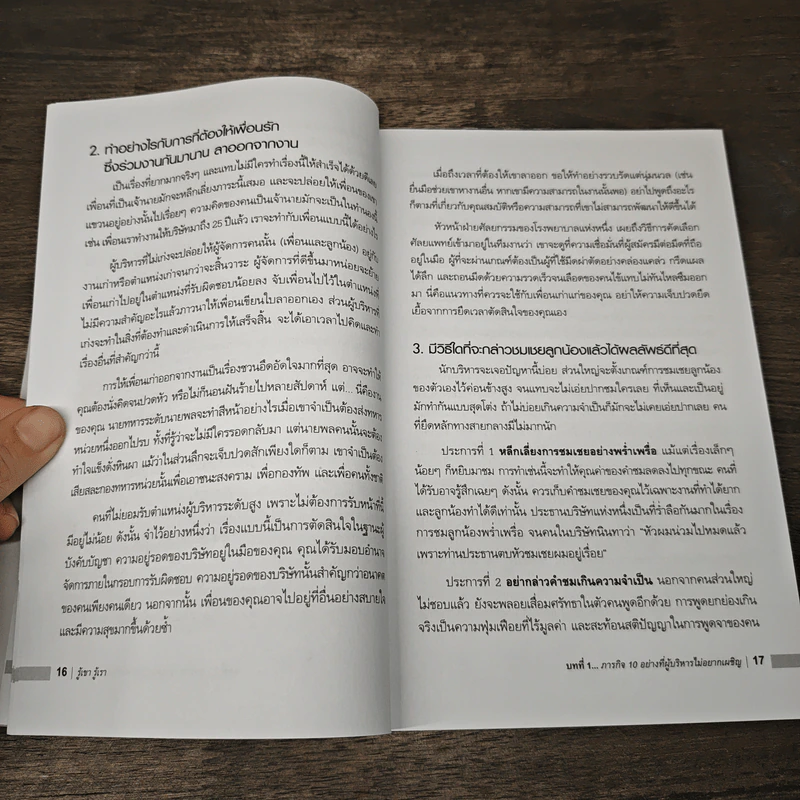 2. ทำอย่างไรกับการที่ต้องให้เพื่อนรัก
ซึ่งร่วมงานกันมานาน ลาออกจากงาน
เป็นเรื่องที่ยากมากจริงๆ และแทบไม่มีใครทำเรื่องนี้ให้สำเร็จได้ด้วยดีเลย
เพื่อนที่เป็นเจ้านายมักจะหลีกเลี่ยงภาระนี้เสมอ และจะปล่อยให้เพื่อนของเขา
แขวนอยู่อย่างนั้นไปเรื่อยๆ ความคิดของคนเป็นเจ้านายมักจะเป็นในทำนองนี้
เช่น เพื่อนเราทำงานให้บริษัทมาถึง 25 ปีแล้ว เราจะทำกับเพื่อนแบบนี้ได้อย่างไร
ผู้บริหารที่ไม่เก่งจะปล่อยให้ผู้จัดการคนนั้น (เพื่อนและลูกน้อง) อยู่กับ
งานเก่าหรือตำแหน่งเก่าจนกว่าจะสิ้นวาระ ผู้จัดการที่ดีขึ้นมาหน่อยจะย้าย
เพื่อนเก่าไปอยู่ในตำแหน่งที่รับผิดชอบน้อยลง จับเพื่อนไปไว้ในตำแหน่งที่
ไม่มีความสำคัญอะไรแล้วภาวนาให้เพื่อนเขียนใบลาออกเอง ส่วนผู้บริหารที่
เก่งจะทำในสิ่งที่ต้องทำและดำเนินการให้เสร็จสิ้น จะได้เอาเวลาไปคิดและทำ
เรื่องอื่นที่สำคัญกว่านี้
การให้เพื่อนเก่าออกจากงานเป็นเรื่องชวนอึดอัดใจมากที่สุด อาจจะทำให้
คุณต้องนั่งคิดจนปวดหัว หรือไม่ก็นอนฝันร้ายไปหลายสัปดาห์ แต่... นี่คืองาน
ของคุณ นายทหารระดับนายพลจะทำสีหน้าอย่างไรเมื่อเขาจำเป็นต้องส่งทหาร
หน่วยหนึ่งออกไปรบ ทั้งที่รู้ว่าจะไม่มีใครรอดกลับมา แต่นายพลคนนั้นจะต้อง
ทำใจแข็งดังหินผา แม้ว่าในส่วนลึกจะเจ็บปวดสักเพียงใดก็ตาม เขาจำเป็นต้อง
เสียสละกองทหารหน่วยนั้นเพื่อเอาชนะสงคราม เพื่อกองทัพ และเพื่อคนทั้งชาติ
คนที่ไม่ยอมรับตำแหน่งผู้บริหารระดับสูง เพราะไม่ต้องการรับหน้าที่นี้
มีอยู่ไม่น้อย ดังนั้น จำไว้อย่างหนึ่งว่า เรื่องแบบนี้เป็นการตัดสินใจในฐานะผู้
บังคับบัญชา ความอยู่รอดของบริษัทอยู่ในมือของคุณ คุณได้รับมอบอำนาจ
จัดการภายในกรอบการรับผิดชอบ ความอยู่รอดของบริษัทนั้นสำคัญกว่าอนาคต
ของคนเพียงคนเดียว นอกจากนั้น เพื่อนของคุณอาจไปอยู่ที่อื่นอย่างสบายใจ
และมีความสุขมากขึ้นด้วยซ้ำ
16 | รู้เขา รู้เรา
เมื่อถึงเวลาที่ต้องให้เขาลาออก ขอให้ทำอย่างรวบรัดแต่นุ่มนวล (เช่น
ยื่นมือช่วยเขาหางานอื่น หากเขามีความสามารถในงานนั้นพอ) อย่าไปพูดถึงอะไร
ก็ตามที่เกี่ยวกับคุณสมบัติหรือความสามารถที่เขาไม่สามารถพัฒนาให้ดีขึ้นได้
หัวหน้าฝ่ายศัลยกรรมของโรงพยาบาลแห่งหนึ่ง เผยถึงวิธีการคัดเลือก
ศัลยแพทย์เข้ามาอยู่ในทีมงานว่า เขาจะดูที่ความเชื่อมั่นที่ผู้สมัครมีต่อมีดที่ถือ
อยู่ในมือ ผู้ที่จะผ่านเกณฑ์ต้องเป็นผู้ที่ใช้มีดผ่าตัดอย่างคล่องแคล่ว กรีดแผล
ได้ลึก และถอนมีดด้วยความรวดเร็วจนเลือดของคนไข้แทบไม่ทันไหลซึมออก
มา นี่คือแนวทางที่ควรจะใช้กับเพื่อนเก่าแก่ของคุณ อย่าให้ความเจ็บปวดยืด
เยื้อจากการยืดเวลาตัดสินใจของคุณเอง
3. มีวิธีใดที่จะกล่าวชมเชยลูกน้องแล้วได้ผลลัพธ์ดีที่สุด
นักบริหารจะเจอปัญหานี้บ่อย ส่วนใหญ่จะตั้งเกณฑ์การชมเชยลูกน้อง
ของตัวเองไว้ค่อนข้างสูง จนแทบจะไม่เอ่ยปากชมใครเลย ที่เห็นและเป็นอยู่
มักทำกันแบบสุดโต่ง ถ้าไม่บ่อยเกินความจำเป็นก็มักจะไม่เคยเอ่ยปากเลย คน
ที่ยึดหลักทางสายกลางมีไม่มากนัก
ประการที่ 1 หลีกเลี่ยงการชมเชยอย่างพร่ำเพรื่อ แม้แต่เรื่องเล็กๆ
น้อยๆ ก็หยิบมาชม การทำเช่นนี้จะทำให้คุณค่าของคำชมลดลงไปทุกขณะ คนที่
ได้รับอาจรู้สึกเฉยๆ ดังนั้น ควรเก็บคำชมเชยของคุณไว้เฉพาะงานที่ทำได้ยาก
และลูกน้องทำได้ดีเท่านั้น ประธานบริษัทแห่งหนึ่งเป็นที่ร่ำลือกันมากในเรื่อง
การชมลูกน้องพร่ำเพรื่อ จนคนในบริษัทนินทาว่า “หัวผมน่วมไปหมดแล้ว
เพราะท่านประธานตบหัวชมเชยผมอยู่เรื่อย”
ประการที่ 2 อย่ากล่าวคำชมเกินความจำเป็น นอกจากคนส่วนใหญ่
ไม่ชอบแล้ว ยังจะพลอยเสื่อมศรัทธาในตัวคนพูดอีกด้วย การพูดยกย่องเกิน
จริงเป็นความฟุ่มเฟือยที่ไร้มูลค่า และสะท้อนสติปัญญาในการพูดจาของคน
บทที่ 1... ภารกิจ 10 อย่างที่ผู้บริหารไม่อยากเผชิญ | 17